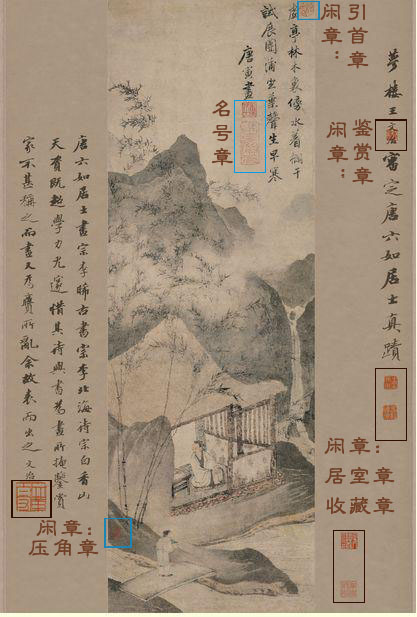 引首章
闲章：
虛亭林木裏傍水着欄干
試展團蒲坐葉聲生早寒
唐寅畫
名号章
夢樓王文治審定唐六如居士真蹟
鉴赏章
闲章：
唐六如居士畫宗李晞古書宗李北海詩宗白香山
天資既超學力尤邃惜其詩與書為畫所掩鑒賞
家不甚稱之而畫又為贋所亂余故表而出之文治
闲章：
居室章
收藏章
闲章：
压角章